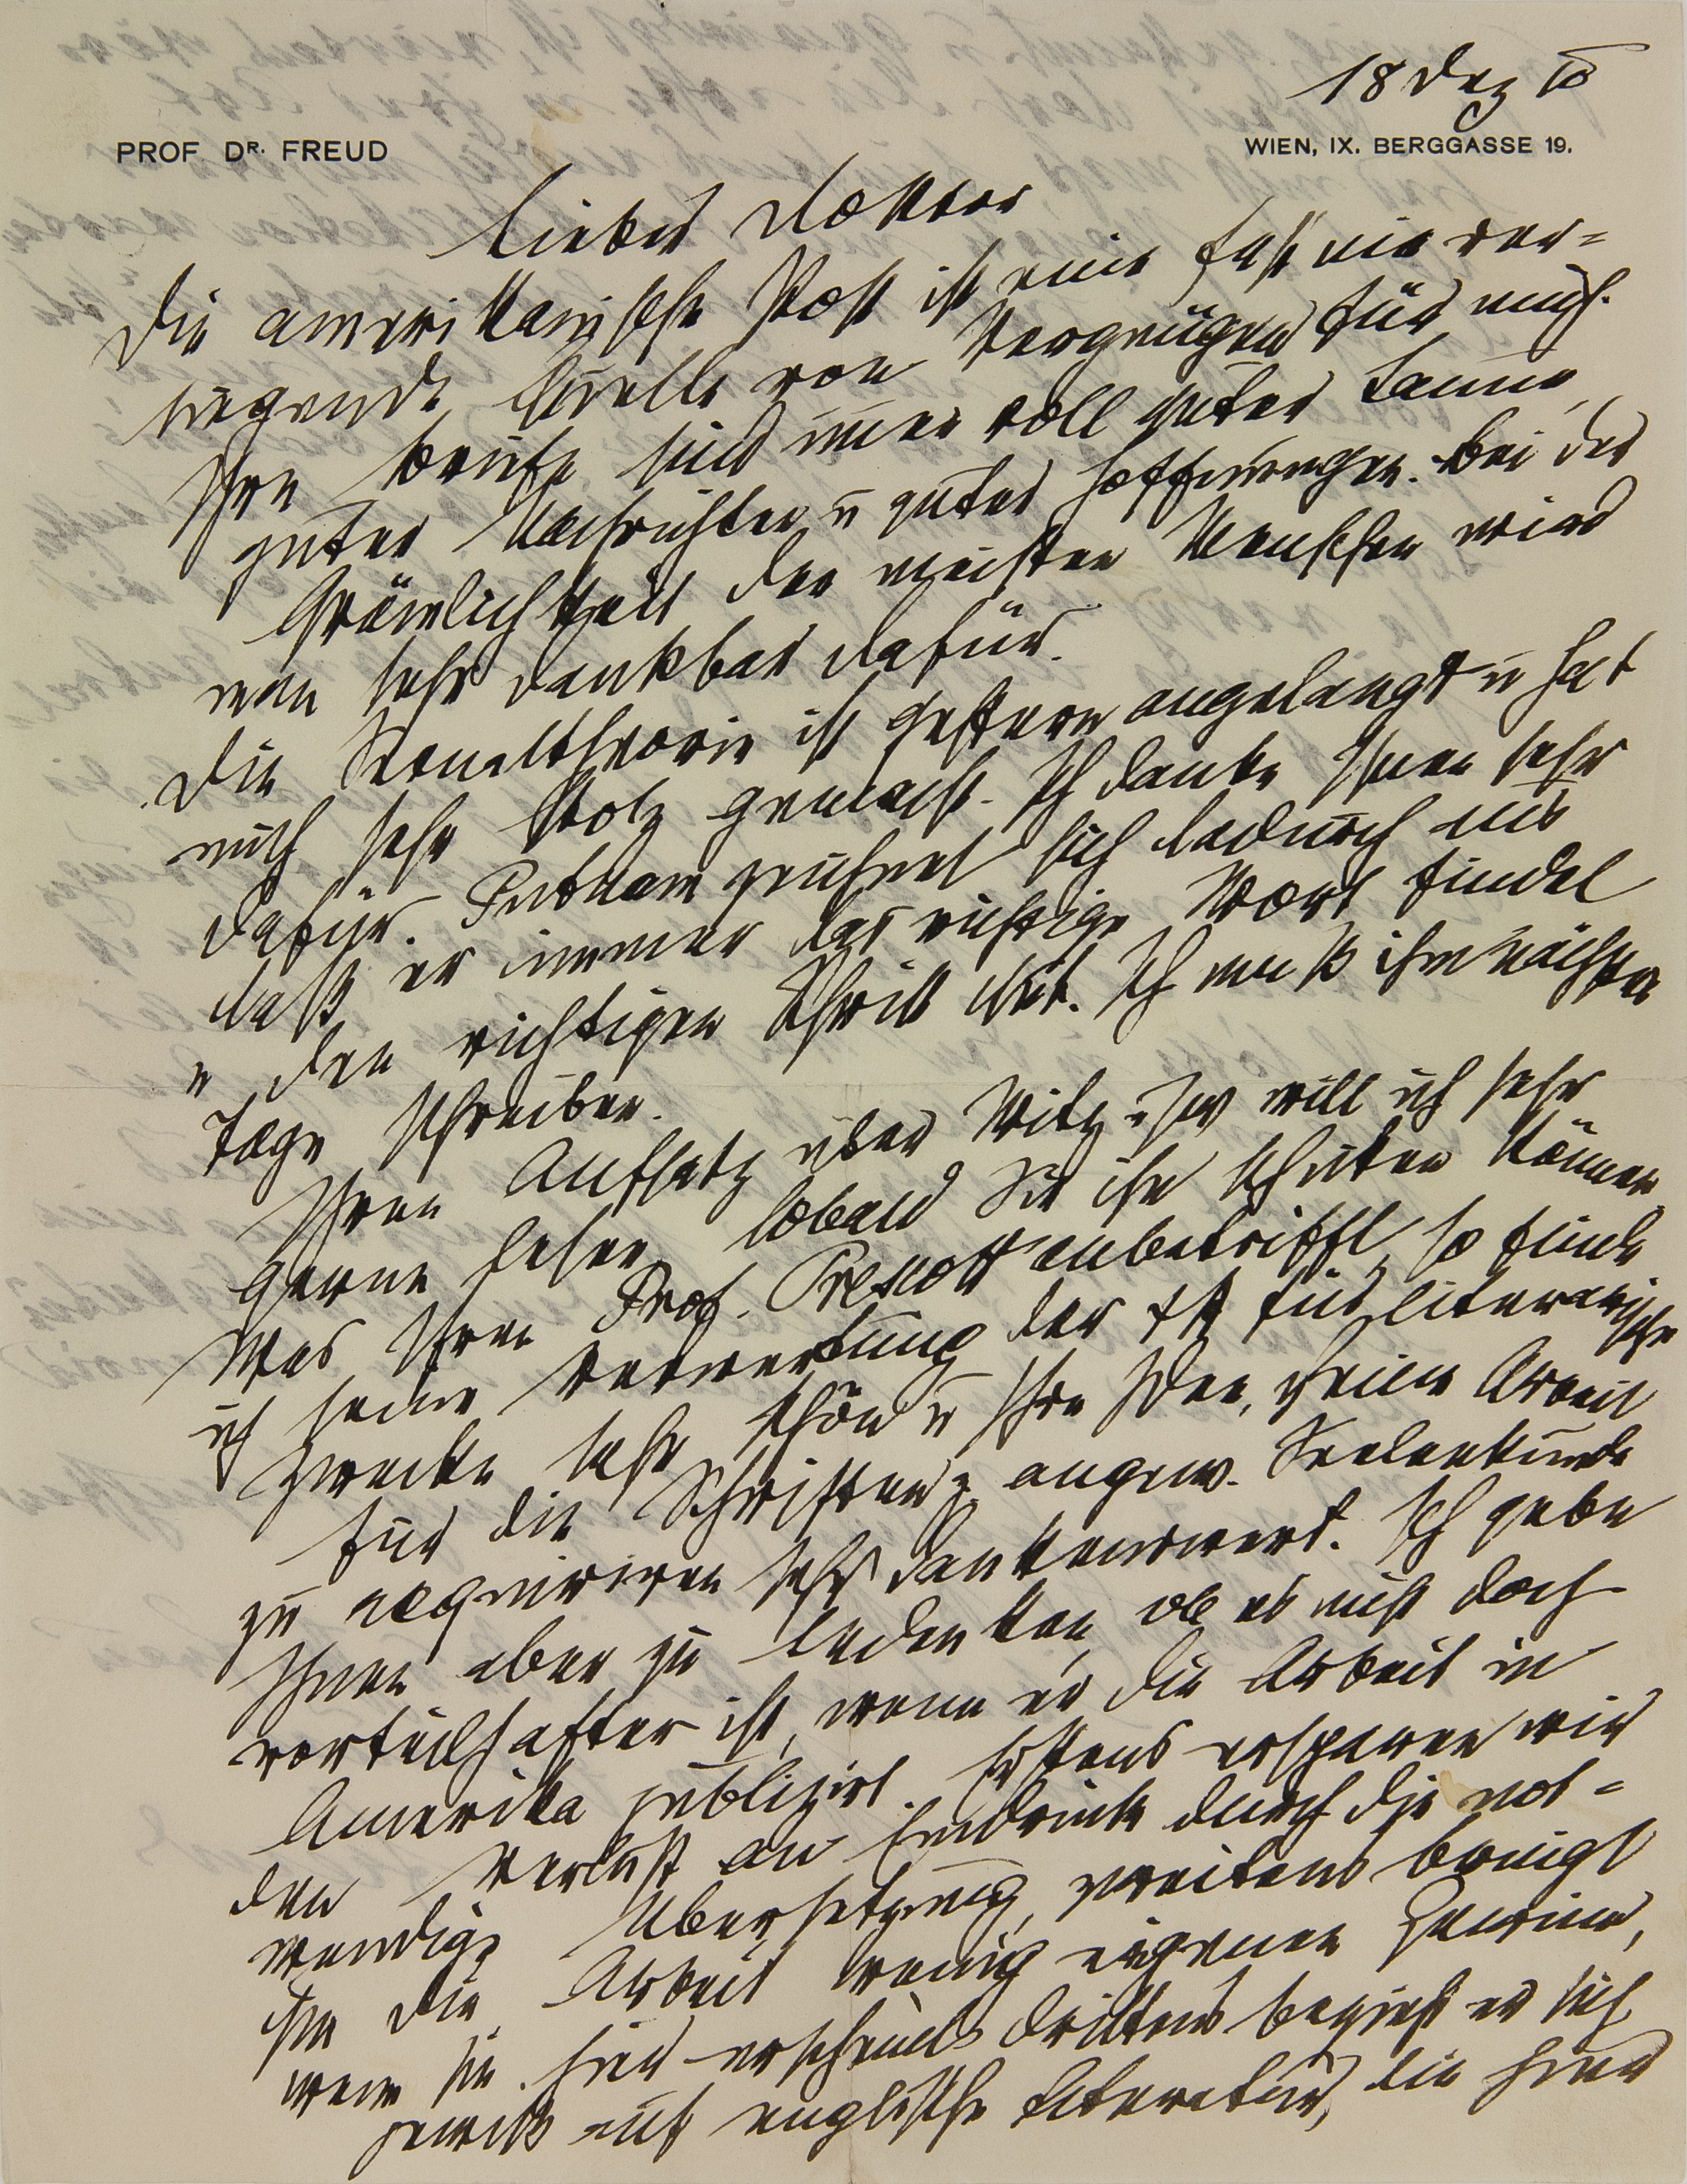 18 Dez 10
PROF. DR. FREUD
WIEN, IX. BERGGASSE 19.
Lieber Doktor
Die amerikanische Post ist eine fast nie ver=
siegende Quelle von Vergnügen für mich.
Ihre Briefe sind immer voll guter Laune,
guter Nachrichten u guter Hoffnungen. Bei der
Grämlichkeit der meisten Menschen wird
man sehr dankbar dafür.
Die Sexualtheorie ist gestern angelangt u hat
mich sehr stolz gemacht. Ich danke Ihnen sehr
dafür. Putnam zeichnet sich dadurch aus
daß er immer das richtige Wort findet
u den richtigen Schritt thut. Ich muß ihm nächster
Tage schreiben.
Ihren Aufsatz über Witz usw will ich sehr
gerne sehen, sobald Sie ihn schicken können.
Was Ihren Prof. Prescott anbetrifft, so finde
ich seine Verwertung der ψΑ für literarische
Zwecke sehr schön u Ihre Idee, seine Arbeit
für die Schriften z angew. Seelenkunde
zu acquiriren sehr dankenswert. Ich gebe
Ihnen aber zu bedenken, ob es nicht doch
vorteilhafter ist, wenn er die Arbeit in
Amerika publizirt. Erstens ersparen wir
den Verlust an Eindruck durch die not=
wendige Übersetzung, zweitens bringt
ihm die Arbeit wenig eigenen Gewinn,
wenn sie hier erscheint drittens bezieht er sich
gewiß auf englische Literatur, die hier